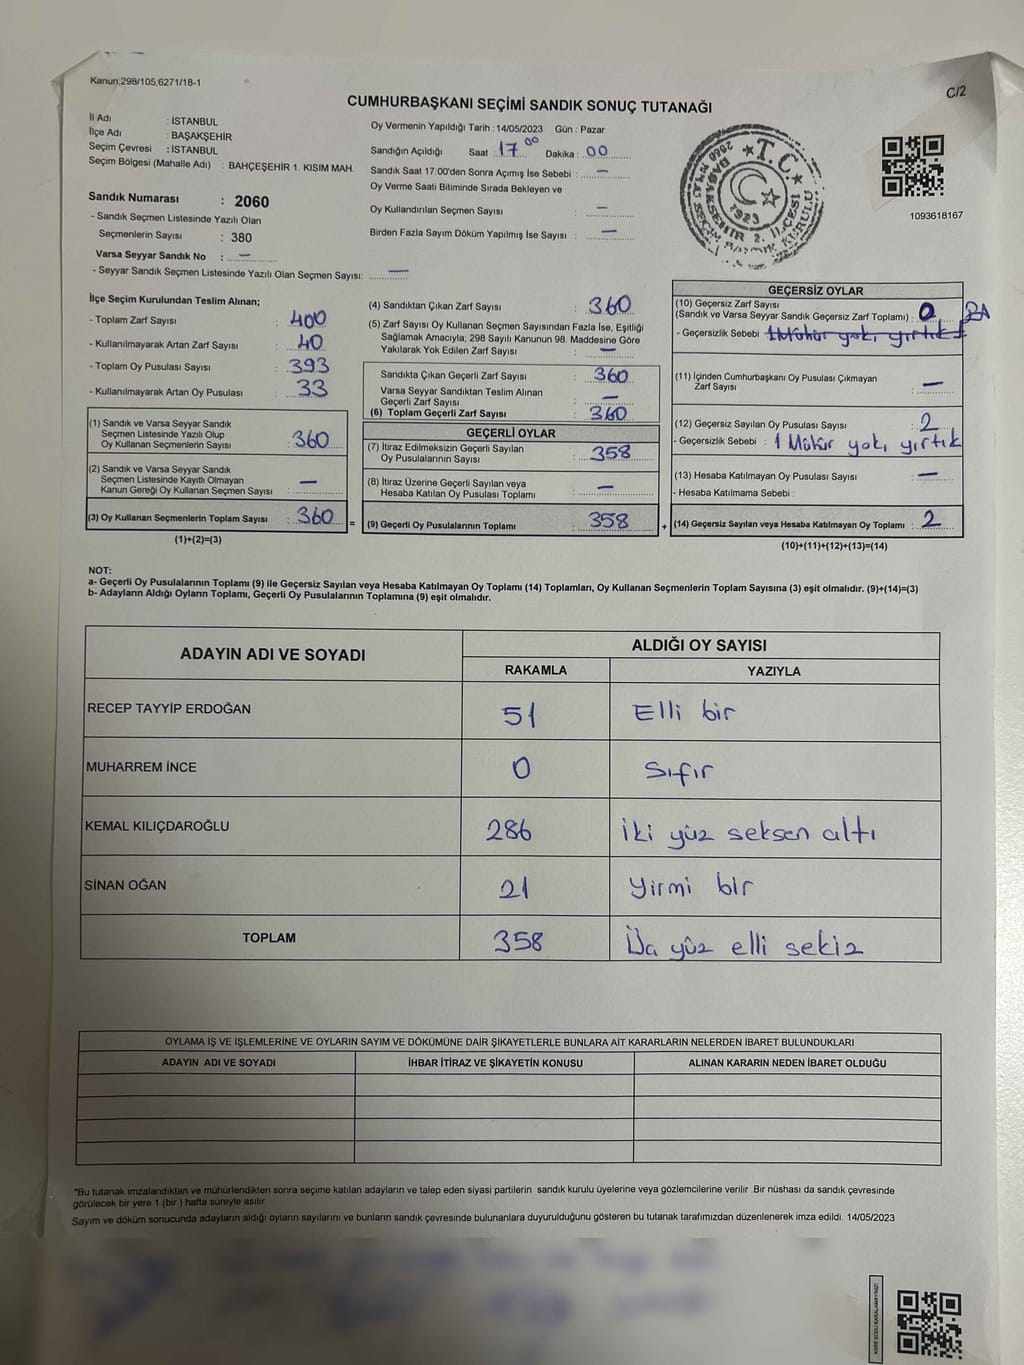 Kanun:298/105,6271/18-1
C/2
CUMHURBAŞKANI SEÇİMİ SANDIK SONUÇ TUTANAĞI
İl Adı : İSTANBUL
İlçe Adı : BAŞAKŞEHİR
Seçim Çevresi : İSTANBUL
Seçim Bölgesi (Mahalle Adı) : BAHÇEŞEHİR 1. KISIM MAH.
Sandık Numarası : 2060
- Sandık Seçmen Listesinde Yazılı Olan
Seçmenlerin Sayısı : 380
Varsa Seyyar Sandık No : —
- Seyyar Sandık Seçmen Listesinde Yazılı Olan Seçmen Sayısı: —
Oy Vermenin Yapıldığı Tarih : 14/05/2023 Gün : Pazar
Sandığın Açıldığı Saat : 17 00 Dakika : 00
Sandık Saat 17.00'den Sonra Açımış İse Sebebi : —
Oy Verme Saati Bitiminde Sırada Bekleyen ve
Oy Kullandırılan Seçmen Sayısı : —
Birden Fazla Sayım Döküm Yapılmış İse Sayısı : —
T.C.
1923
1093618167
İlçe Seçim Kurulundan Teslim Alınan;
- Toplam Zarf Sayısı : 400
- Kullanılmayarak Artan Zarf Sayısı : 40
- Toplam Oy Pusulası Sayısı : 393
- Kullanılmayarak Artan Oy Pusulası : 33
(1) Sandık ve Varsa Seyyar Sandık
Seçmen Listesinde Yazılı Olup
Oy Kullanan Seçmenlerin Sayısı : 360
(2) Sandık ve Varsa Seyyar Sandık
Seçmen Listesinde Kayıtlı Olmayan
Kanun Gereği Oy Kullanan Seçmen Sayısı : —
(3) Oy Kullanan Seçmenlerin Toplam Sayısı : 360 =
(1)+(2)=(3)
(4) Sandıktan Çıkan Zarf Sayısı : 360
(5) Zarf Sayısı Oy Kullanan Seçmen Sayısından Fazla İse, Eşitliği
Sağlamak Amacıyla, 298 Sayılı Kanunun 98. Maddesine Göre
Yakılarak Yok Edilen Zarf Sayısı : —
Sandıkta Çıkan Geçerli Zarf Sayısı : 360
Varsa Seyyar Sandıktan Teslim Alınan
Geçerli Zarf Sayısı : —
(6) Toplam Geçerli Zarf Sayısı : 360
GEÇERLİ OYLAR
(7) İtiraz Edilmeksizin Geçerli Sayılan
Oy Pusulalarının Sayısı : 358
(8) İtiraz Üzerine Geçerli Sayılan veya
Hesaba Katılan Oy Pusulası Toplamı : —
(9) Geçerli Oy Pusulalarının Toplamı : 358 +
GEÇERSİZ OYLAR
(10) Geçersiz Zarf Sayısı
(Sandık ve Varsa Seyyar Sandık Geçersiz Zarf Toplamı) : 0
- Geçersizlik Sebebi : 1 Mühür yok, yırtık 1
(11) İçinden Cumhurbaşkanı Oy Pusulası Çıkmayan
Zarf Sayısı : —
(12) Geçersiz Sayılan Oy Pusulası Sayısı : 2
- Geçersizlik Sebebi : 1 Mühür yok, yırtık
(13) Hesaba Katılmayan Oy Pusulası Sayısı : —
- Hesaba Katılmama Sebebi :
(14) Geçersiz Sayılan veya Hesaba Katılmayan Oy Toplamı : 2
(10)+(11)+(12)+(13)=(14)
NOT:
a- Geçerli Oy Pusulalarının Toplamı (9) ile Geçersiz Sayılan veya Hesaba Katılmayan Oy Toplamı (14) Toplamları, Oy Kullanan Seçmenlerin Toplam Sayısına (3) eşit olmalıdır. (9)+(14)=(3)
b- Adayların Aldığı Oyların Toplamı, Geçerli Oy Pusulalarının Toplamına (9) eşit olmalıdır.
ADAYIN ADI VE SOYADI
ALDIĞI OY SAYISI
RAKAMLA YAZIYLA
RECEP TAYYİP ERDOĞAN 51 Elli bir
MUHARREM İNCE 0 Sıfır
KEMAL KILIÇDAROĞLU 286 İki yüz seksen altı
SİNAN OĞAN 21 Yirmi bir
TOPLAM 358 Üç yüz elli sekiz
OYLAMA İŞ VE İŞLEMLERİNE VE OYLARIN SAYIM VE DÖKÜMÜNE DAİR ŞİKAYETLERLE BUNLARA AİT KARARLARIN NELERDEN İBARET BULUNDUKLARI
ADAYIN ADI VE SOYADI İHBAR İTİRAZ VE ŞİKAYETİN KONUSU ALINAN KARARIN NEDEN İBARET OLDUĞU
*Bu tutanak imzalandıktan ve mühürlendikten sonra seçime katılan adayların ve talep eden siyasi partilerin sandık kurulu üyelerine veya gözlemcilerine verilir .Bir nüshası da sandık çevresinde
görülecek bir yere 1 (bir ) hafta süreyle asılır
Sayım ve döküm sonucunda adayların aldığı oyların sayılarını ve bunların sandık çevresinde bulunanlara duyurulduğunu gösteren bu tutanak tarafımızdan düzenlenerek imza edildi. 14/05/2023